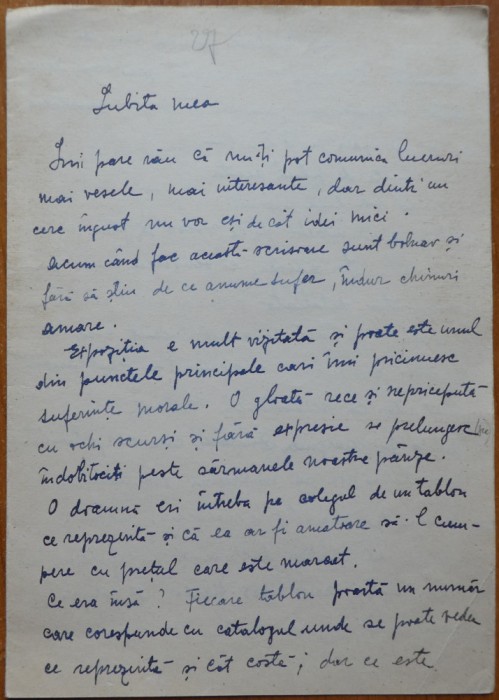 27
Iubita mea
Îmi pare rău că nu-ți pot comunica lucruri
mai vesele, mai interesante, dar dintr'un
cerc îngust nu vor eși de cât idei mici.
Acum când fac această scrisoare sunt bolnav și
fără să știu de ce anume sufer, îndur chinuri
amare.
Expoziția e mult vizitată și poate este unul
din punctele principale cari îmi pricinuesc
suferințe morale. O gloată rece și nepricepută
cu ochi scurși și fără expresie se prelungesc
îndobitociți peste sărmanele noastre pânze.
O doamnă eri întreba pe colegul de un tablou
ce reprezintă și că ea ar fi amatoare să-l cum-
pere cu prețul care este marcat.
Ce era însă? Fiecare tablou poartă un număr
care corespunde cu catalogul unde se poate vedea
ce reprezintă și cât costă; dar ce este